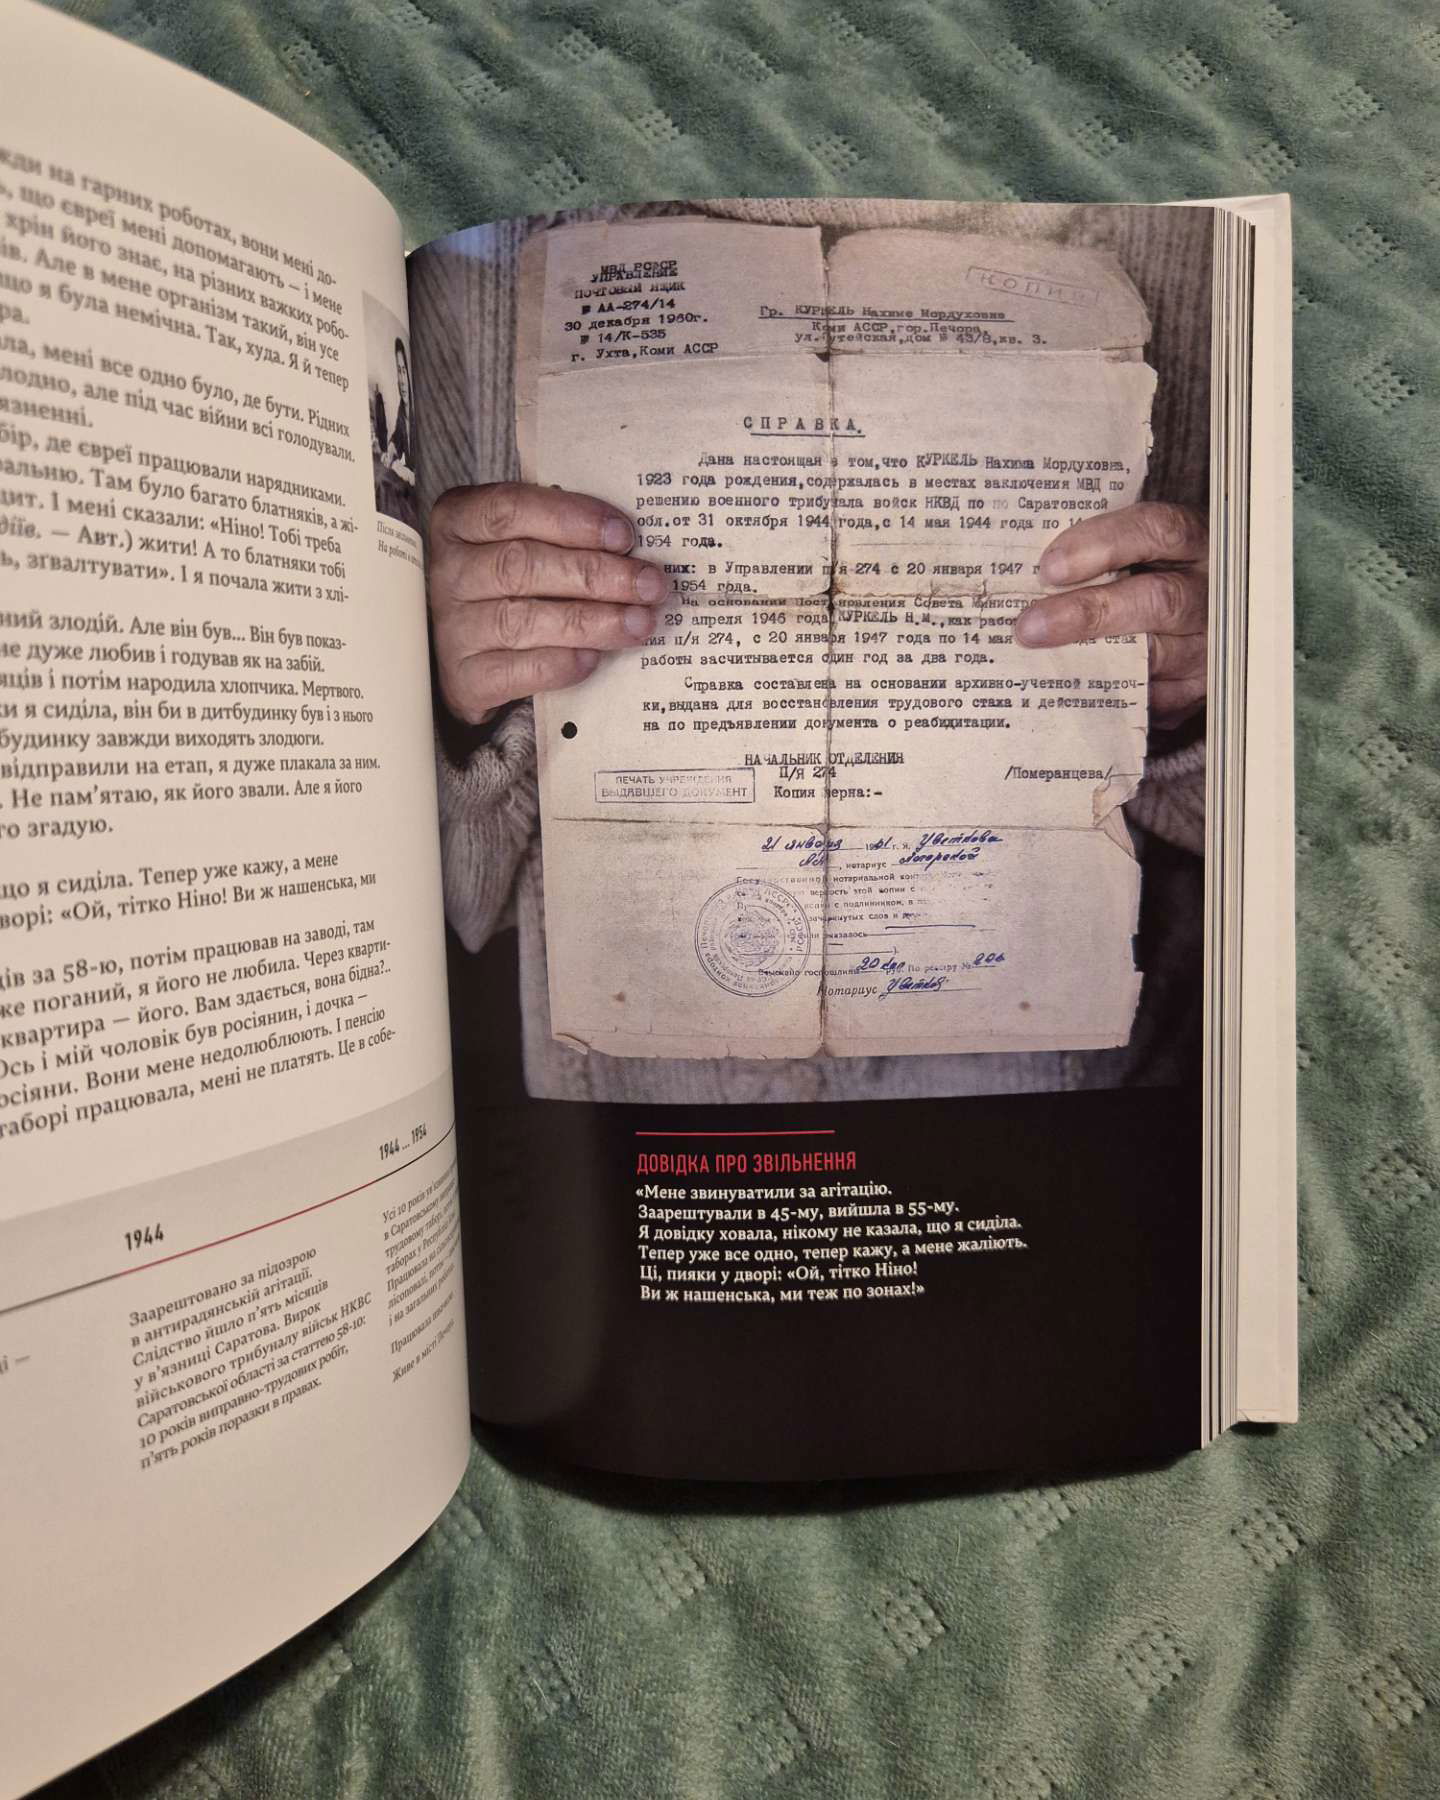 жди на гарних роботах, вони мені до-
що євреї мені допомагають — і мене
хрін його знає, на різних важких робо-
ів. Але в мене організм такий, він усе
що я була немічна. Так, худа. Я й тепер
ра.
ла, мені все одно було, де бути. Рідних
лодно, але під час війни всі голодували.
язненні.
бір, де євреї працювали нарядниками.
ральню. Там було багато блатняків, а жі-
цит. І мені сказали: «Ніно! Тобі треба
діїв. — Авт.) жити! А то блатняки тобі
ь, зґвалтувати». І я почала жити з хлі-
ний злодій. Але він був... Він був показ-
не дуже любив і годував як на забій.
яців і потім народила хлопчика. Мертвого.
ки я сиділа, він би в дитбудинку був і з нього
будинку завжди виходять злодюги.
відправили на етап, я дуже плакала за ним.
. Не пам'ятаю, як його звали. Але я його
го згадую.
що я сиділа. Тепер уже кажу, а мене
дворі: «Ой, тітко Ніно! Ви ж нашенська, ми
ців за 58-ю, потім працював на заводі, там
же поганий, я його не любила. Через кварти-
квартира — його. Вам здається, вона бідна?..
Ось і мій чоловік був росіянин, і дочка —
осіяни. Вони мене недолюблюють. І пенсію
таборі працювала, мені не платять. Це в собе-
Після звільнення.
На роботі в
1944
Заарештовано за підозрою
в антирадянській агітації.
Слідство йшло п'ять місяців
у в'язниці Саратова. Вирок
військового трибуналу військ НКВС
Саратовської області за статтею 58-10:
10 років виправно-трудових робіт,
п'ять років поразки в правах.
1944 ... 1954
Усі 10 років
в Саратовському
трудовому таборі,
таборах у Республіці
Працювала на
лісоповалі, потім
і на загальних роботах.
Працювала
Живе в місті Печора.
МВД РСФСР
УПРАВЛЕНИЕ
ПОЧТОВЫЙ ЯЩИК
№ АА-274/14
30 декабря 1960г.
№ 14/К-535
г. Ухта, Коми АССР
КОПИЯ
Гр. КУРКЕЛЬ Нахиме Мордуховне
Коми АССР, гор. Печора,
дом № 43/8, кв. 3.
СПРАВКА.
Дана настоящая в том, что КУРКЕЛЬ Нахима Мордуховна,
1923 года рождения, содержалась в местах заключения МВД по
решению военного трибунала войск НКВД по Саратовской
обл. от 31 октября 1944 года, с 14 мая 1944 года по 14
1954 года.
них: в Управлении п/я 274 с 20 января 1947 г
1954 года.
На основании Постановления Совета Министро
29 апреля 1946 года КУРКЕЛЬ Н.М., как рабо
ния п/я 274, с 20 января 1947 года по 14 мая года стаж
работы засчитывается один год за два года.
Справка составлена на основании архивно-учетной карточ-
ки, выдана для восстановления трудового стажа и действитель-
на по предъявлении документа о реабидитации.
НАЧАЛЬНИК ОТДЕЛЕНИЯ
П/я 274 /Померанцева/
ПЕЧАТЬ УЧРЕЖДЕНИЯ
ВЫДАВШЕГО ДОКУМЕНТ
Копия верна:-
21 января 1961 г. я, Цветкова
, нотариус
Государственной нотариальной конторы
верность этой копии с
с подлинником, в
зачеркнутых слов и
не оказалось
Взыскано госпошлины 20 коп руб. По реестру №
Нотариус Цветкова
ДОВІДКА ПРО ЗВІЛЬНЕННЯ
«Мене звинуватили за агітацію.
Заарештували в 45-му, вийшла в 55-му.
Я довідку ховала, нікому не казала, що я сиділа.
Тепер уже все одно, тепер кажу, а мене жаліють.
Ці, пияки у дворі: «Ой, тітко Ніно!
Ви ж нашенська, ми теж по зонах!»